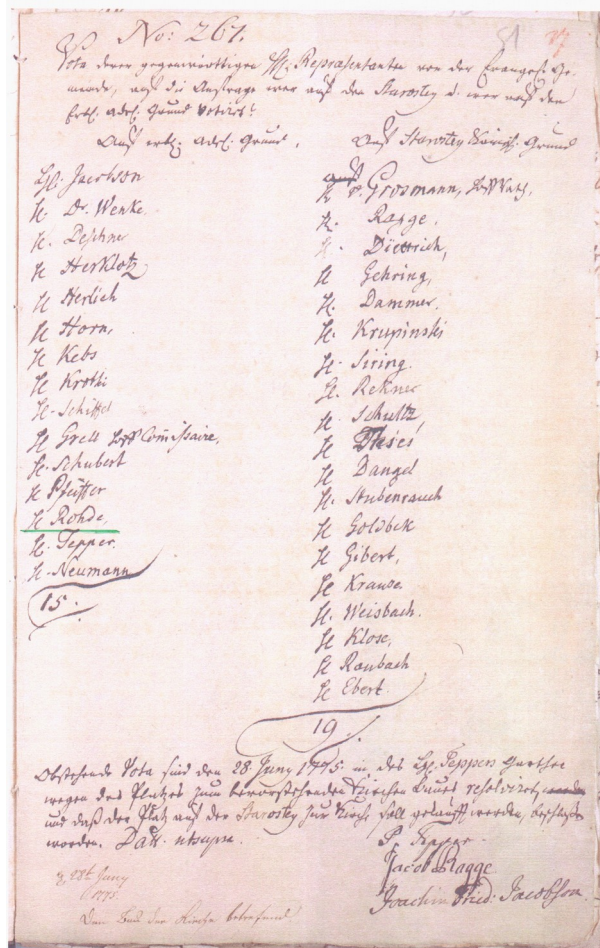 No: 267.
51 27
Vota derer gegenwärtigen HH. Repräsentanten von der Evangel. Ge-
meinde, auf die Anfrage wer auf den Starostey u. wer auf den
Erbl. adel. Grund votirt?
Auf erbl. adel. Grund.
H. Jacobson
H. Dr. Wenke.
H. Peschner
H Herklotz
H Herlich
H Horn,
H Kebs
H Krotki
H. Schiffel
H Grell Commissaire,
H. Schubert
H Pfeiffer
H Rohde,
H. Tepper.
H. Neumann
15.
Auf Starostey Grund
H v. Grosmann,
H. Ragge.
H. Diettrich,
H Gehring,
H. Dammer.
H. Krupinski
H. Siring.
H. Rekner
H. Schultz,
H Thies
H Dangel
H. Stubenrauch
H Goldbek
H Gibert,
H Krause
H. Weisbach.
H Klose,
H Raubach
H Ebert.
19.
Obstehende Vota sind den 28 Juny 1775 in des H. Teppers Garthen
wegen des Platzes zum bevorstehenden Kirchen Baues resolviret
und daß der Platz auf der Starostey zur Kirche soll gekaufft werden, beschlossen
worden. Dat. utsupra.
P. Tepper
Jacob Ragge
Joachim Fried: Jacobson.
28t Juny
1775
Den Bau der Kirche betreffend